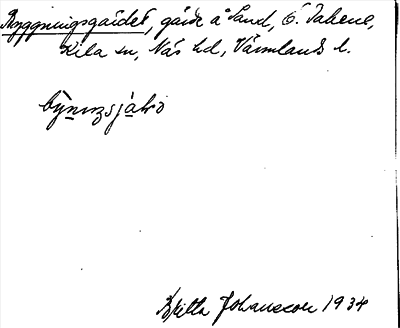 Byggningsgärdet, gärde å Sand, Ö. Takene,
Kila sn, Näs hd, Värmlands l.
Britta Johansson 1934